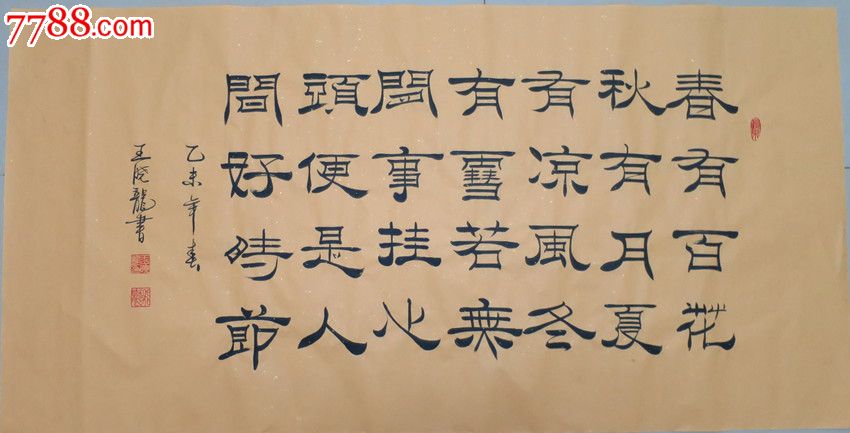 7788.com
春有百花
秋有月夏
有凉風冬
有雪若無
閑事挂心
頭便是人
間好時節
乙未年春
王晓龍書